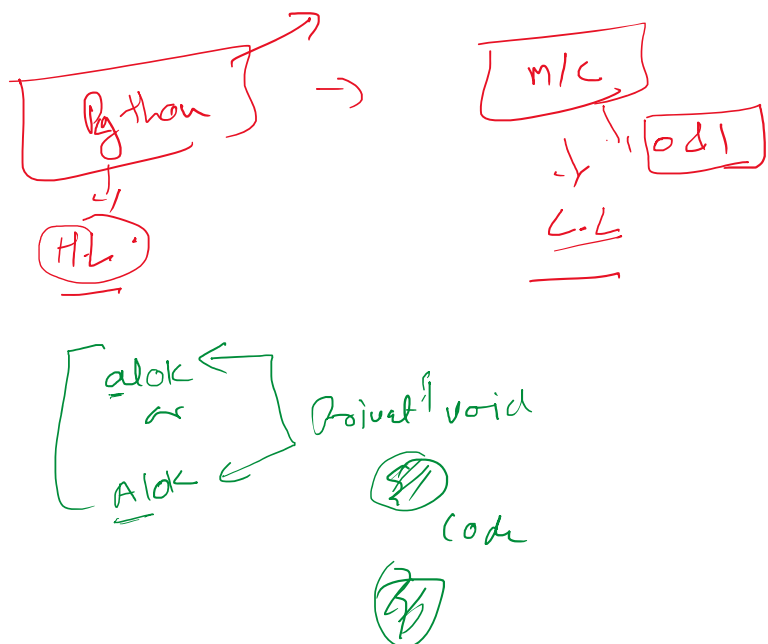 Python
m/c
0 d 1
H.L.
L.L
alok
or
Alok
Privat void
Code